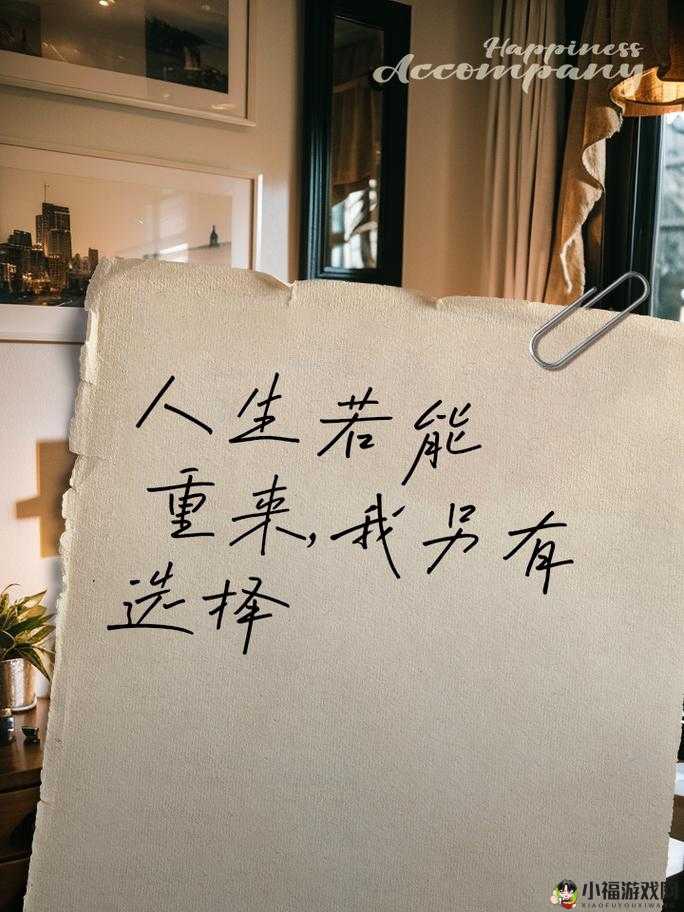 Happiness
Accompany
人生若能
重来,我另有
选择
小福游戏网
XIAOFUYOUXIWANG